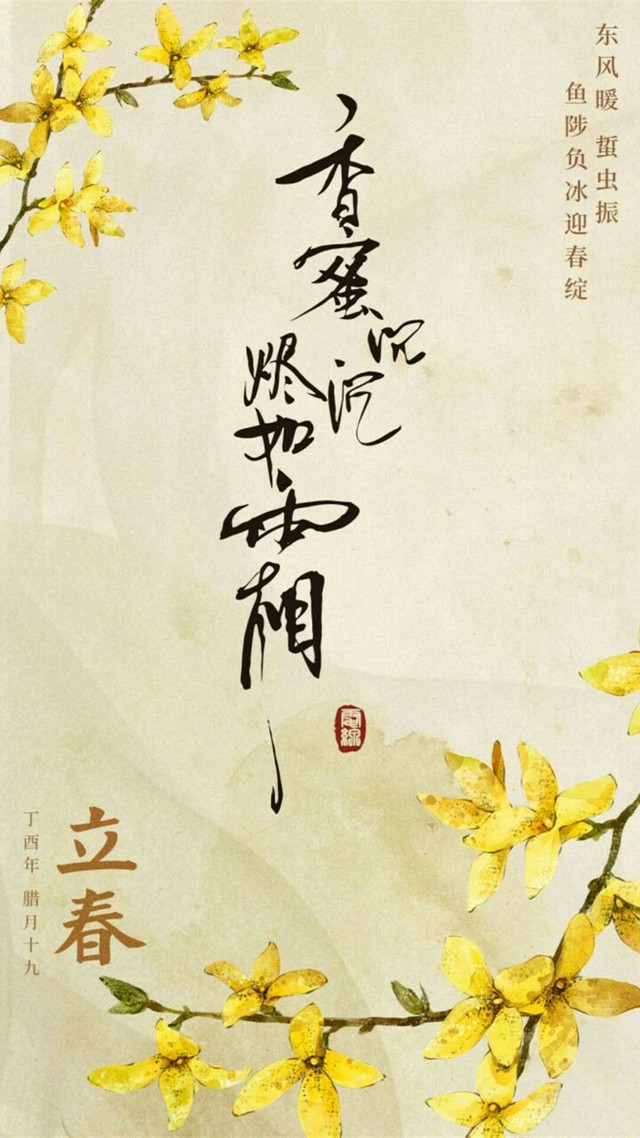 东风暖 蛰虫振
鱼陟负冰迎春绽
香蜜沉沉烬如霜
立春
丁酉年 腊月十九